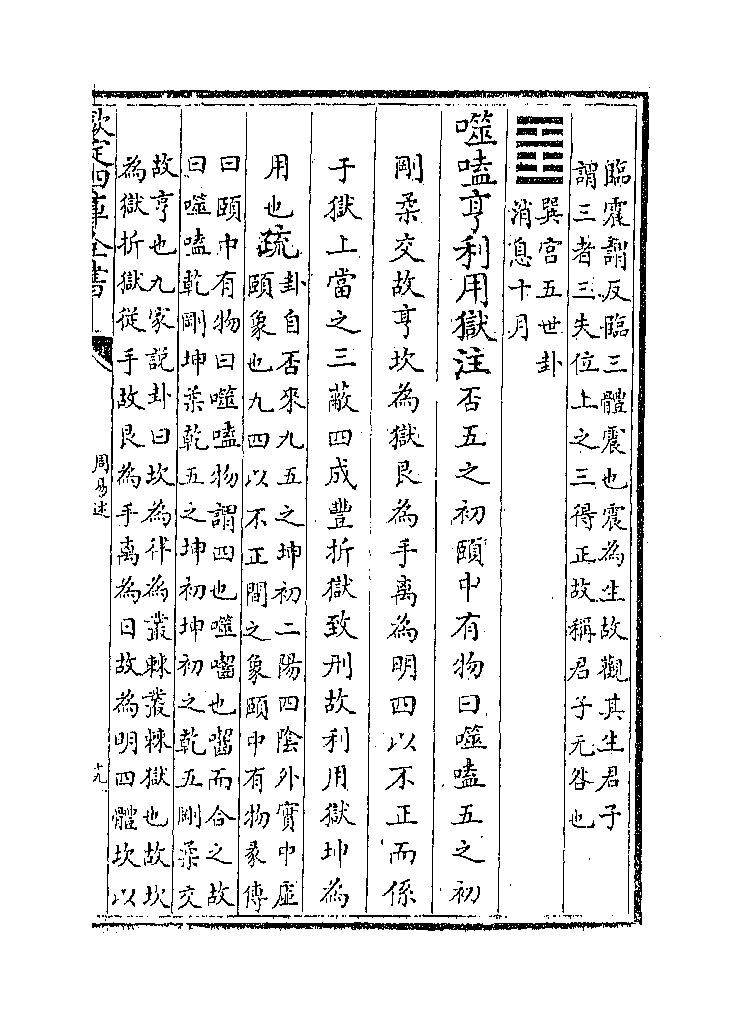 臨震謂反臨三體震也震為生故觀其生君子
謂三者三失位上之三得正故稱君子无咎也
巽宮五世卦
消息十月
噬嗑亨利用獄注否五之初頤中有物曰噬嗑五之初
剛柔交故亨坎為獄艮為手離為明四以不正而係
于獄上當之三蔽四成豐折獄致刑故利用獄坤為
用也疏卦自否來九五之坤初二陽四陰外實中虛
頤象也九四以不正間之象頤中有物彖傳
曰頤中有物曰噬嗑物謂四也噬齧也齧而合之故
曰噬嗑乾剛坤柔乾五之坤初坤初之乾五剛柔交
故亨也九家說卦曰坎為律為叢棘叢棘獄也故坎
為獄折獄從手故艮為手離為日故為明四體坎以
欽定四庫全書
周易述
十九